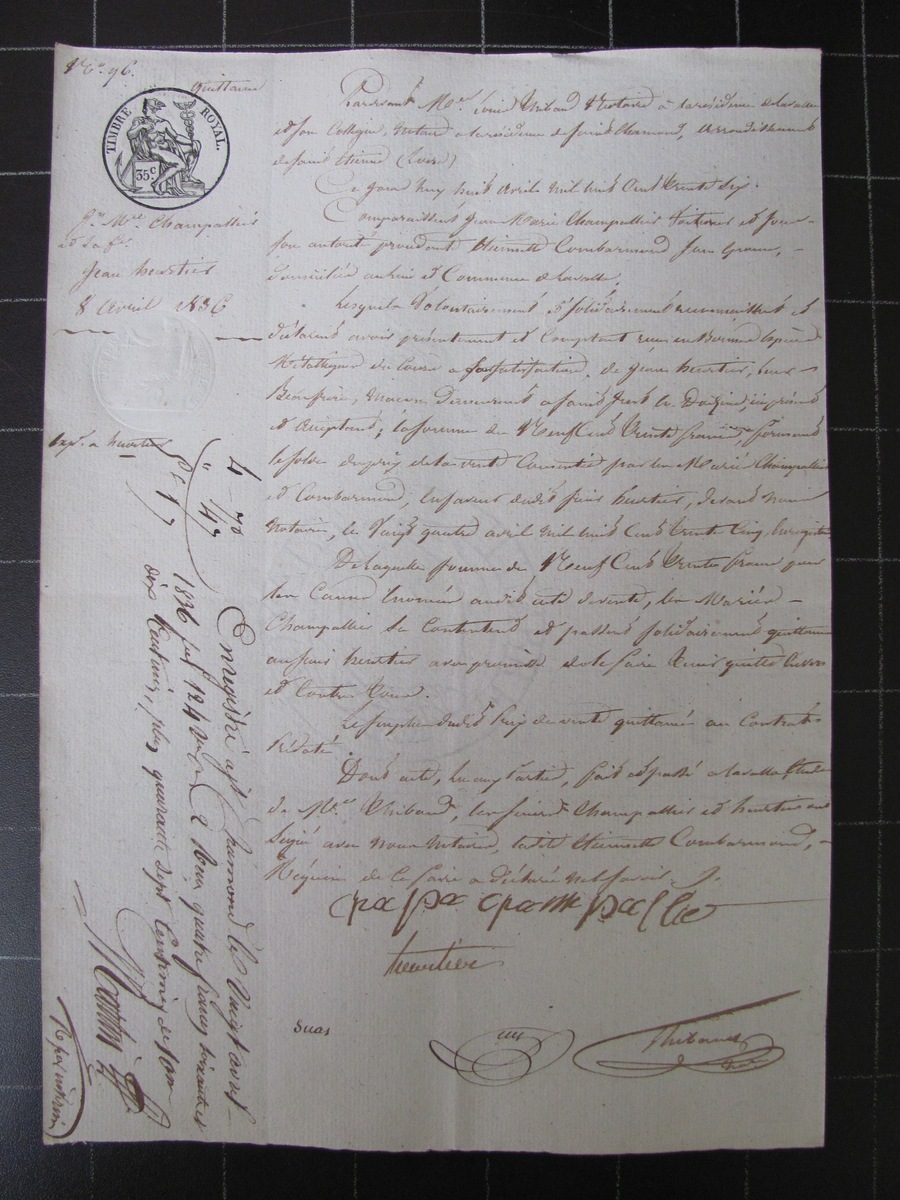 N.° 96.
quittance
TIMBRE ROYAL.
35c
Jn Mie Champallier
et sa fe
Jean heurtier
8 avril 1836
exp. a heurtier
Pardevant Me Louis Thibaud Notaire à la résidence de Lavalla
et son Collègue, Notaire à la résidence de Saint Chamond, arrondissement
de Saint Etienne (Loire)
Ce jour huit avril mil huit cent trente six.
Comparaissent Jean Marie Champallier et sous
son autorité procédant Etiennette Combarmond sa femme,
domiciliés au lieu et Commune de Lavalla,
Lesquels volontairement et solidairement reconnaissent et
déclarent avoir présentement et comptant reçu en bonnes espèces
Métalliques du cours à satisfaction, de Jean heurtier, leur
Beaufrère, maçon demeurant à Saint Just en Doizieu, ici présent
et acceptant; la somme de Neuf cent trente francs, formant
le solde du prix de la vente consentie par les Mariés Champallier
et Combarmond, en faveur dudit sieur heurtier, devant nous
Notaire, le vingt quatre avril mil huit cent trente cinq, enregistrée
De laquelle somme de Neuf cent trente francs pour
les causes énoncées audit acte de vente, les Mariés
Champallier se contentent et passent solidairement quittance
au sieur heurtier avec promesse de le faire tenir quitte envers
et contre tous.
Le surplus dudit prix de vente quittancé au contrat
prédaté.
Dont acte, lu aux parties, fait et passé à Lavalla Etude
de Me Thibaud, les sieurs Champallier et heurtier ont
signé avec nous Notaires, ladite Etiennette Combarmond,
Réquise de le faire a déclaré ne le savoir.
heurtier
Suas
Thibaud
not
4 - 70
" 47
5 f 17
Enregistré à St Chamond le vingt avril
1836 fol 124 Reçu quatre francs soixante et
dix centimes, plus quarante sept centimes de son